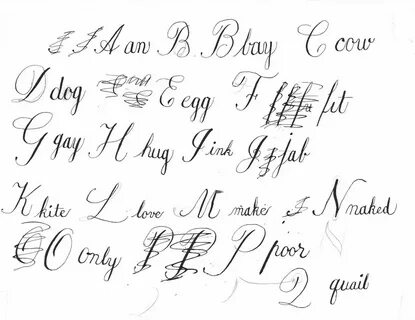 A an B B bay C cow
D dog E egg F fit
G gay H hug I ink J jab
K kite L love M make N naked
O only P P P poor
Q quail